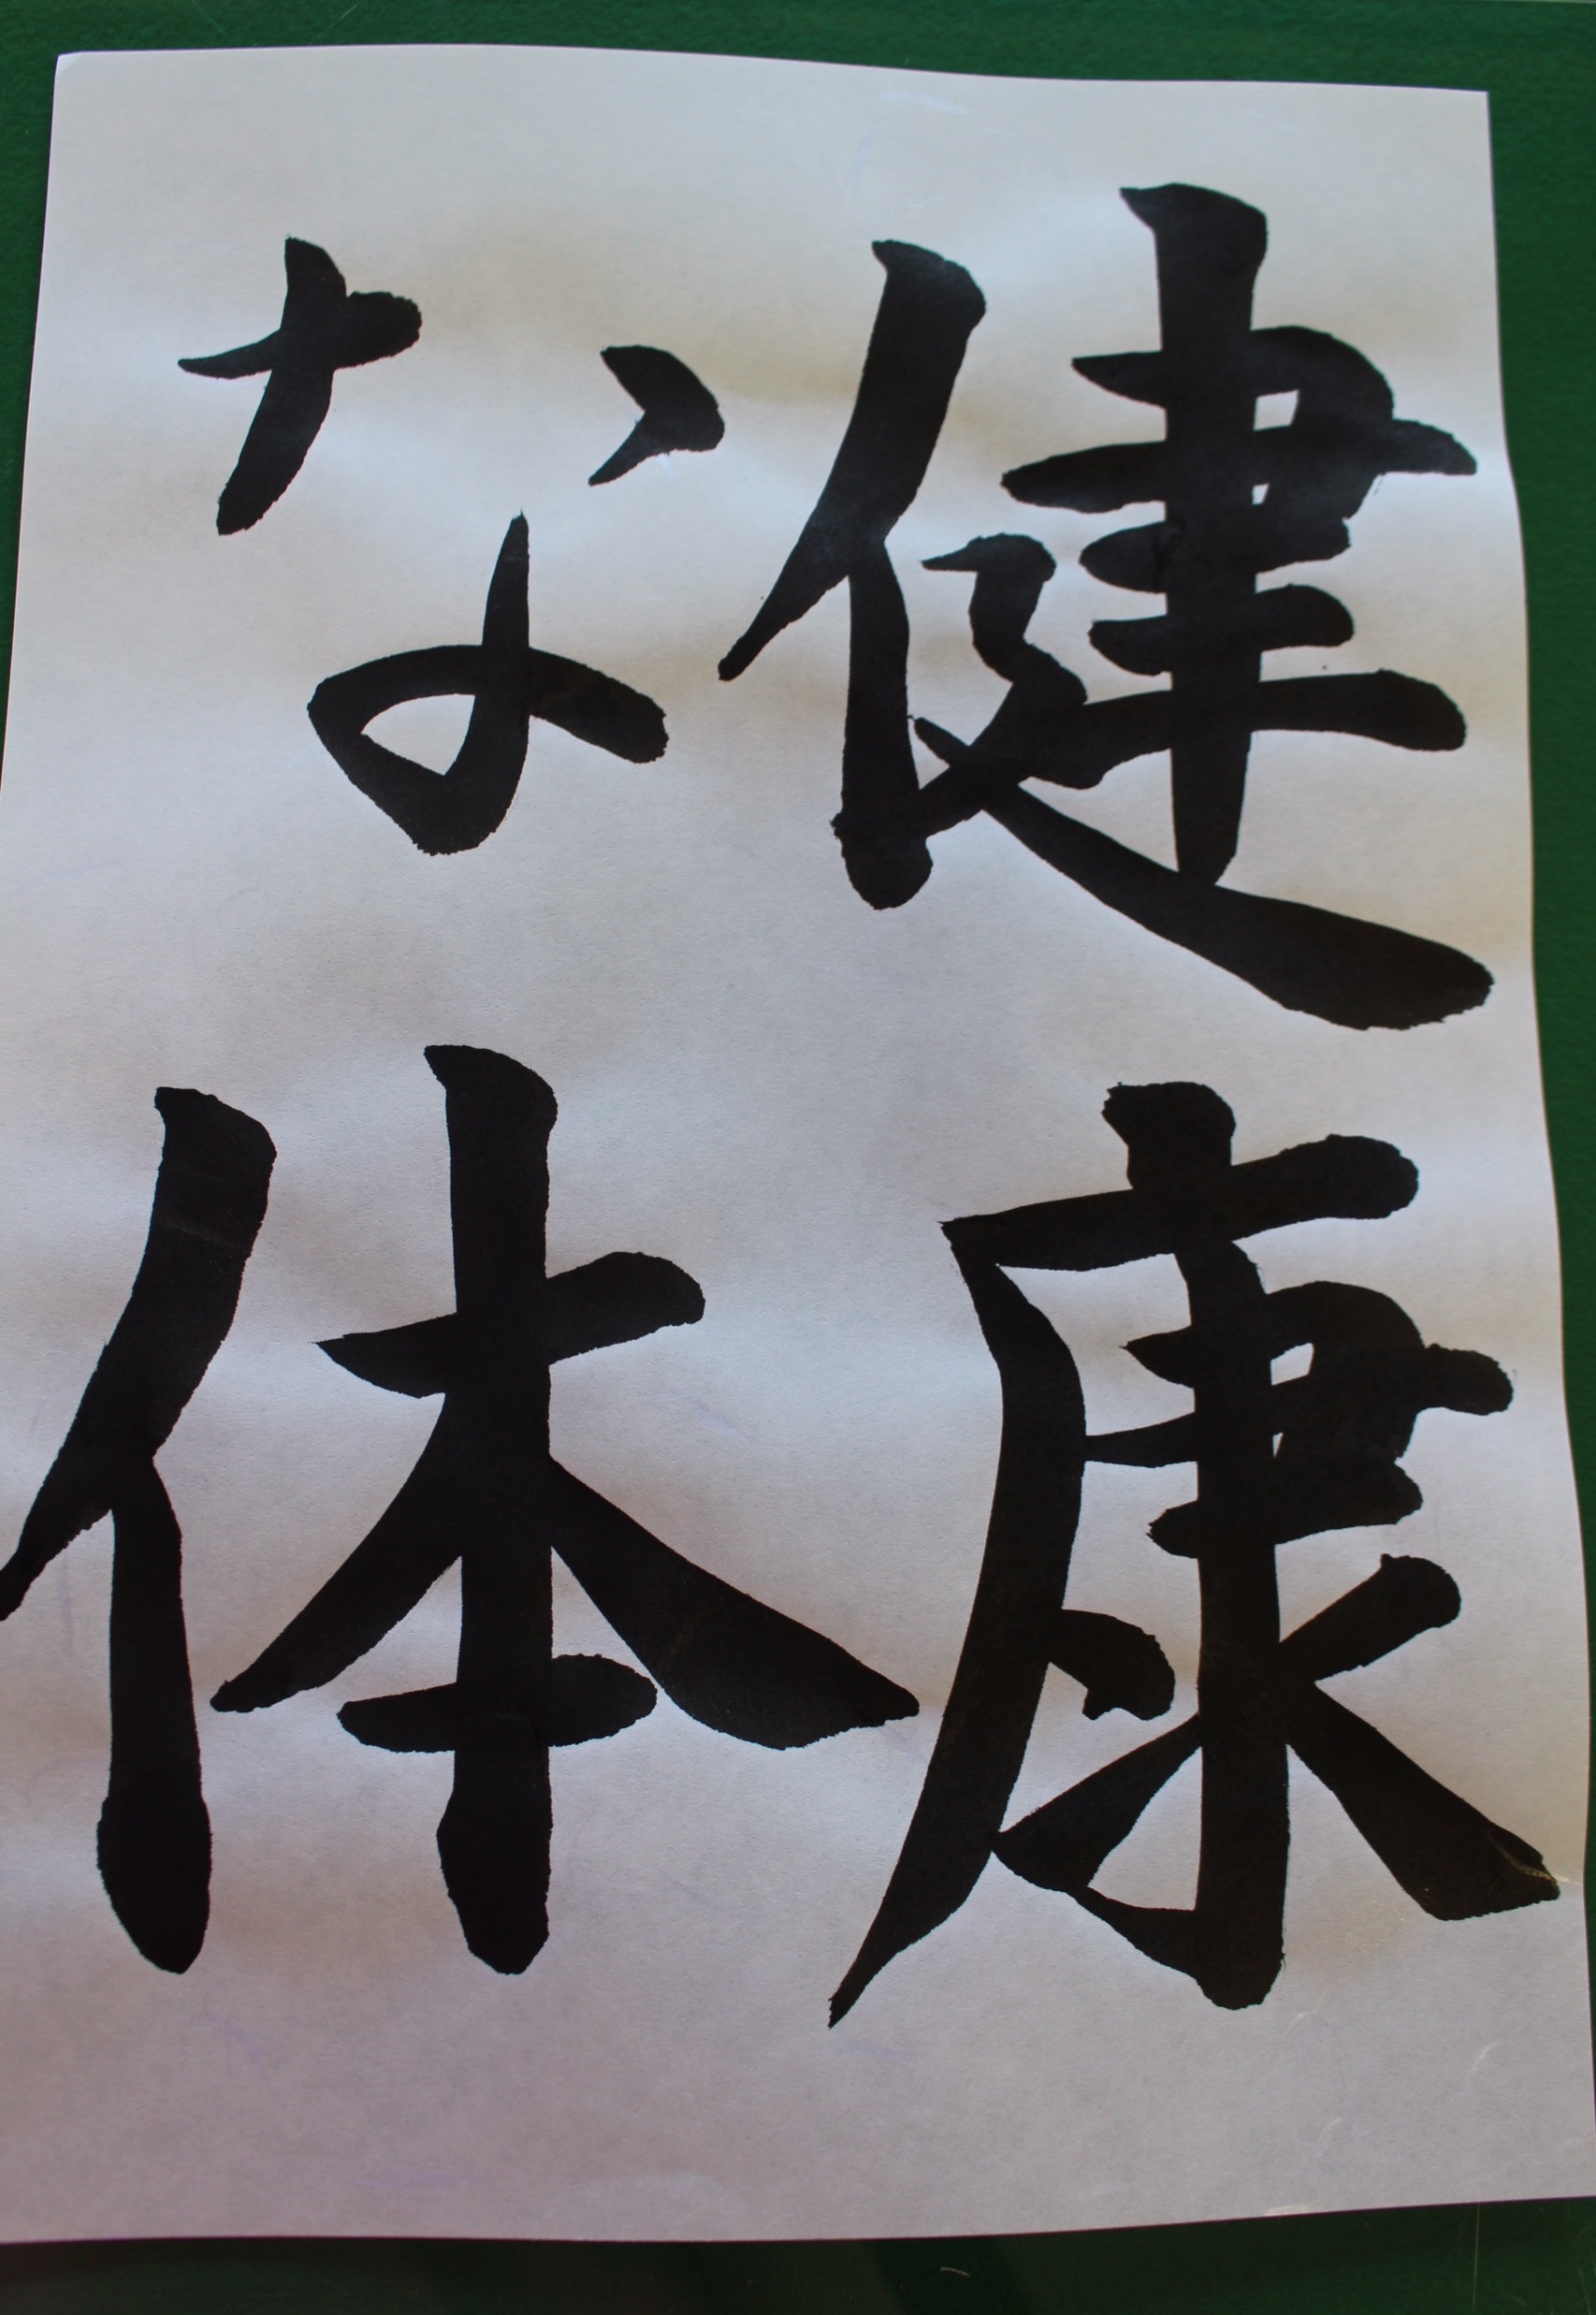 健康
な体